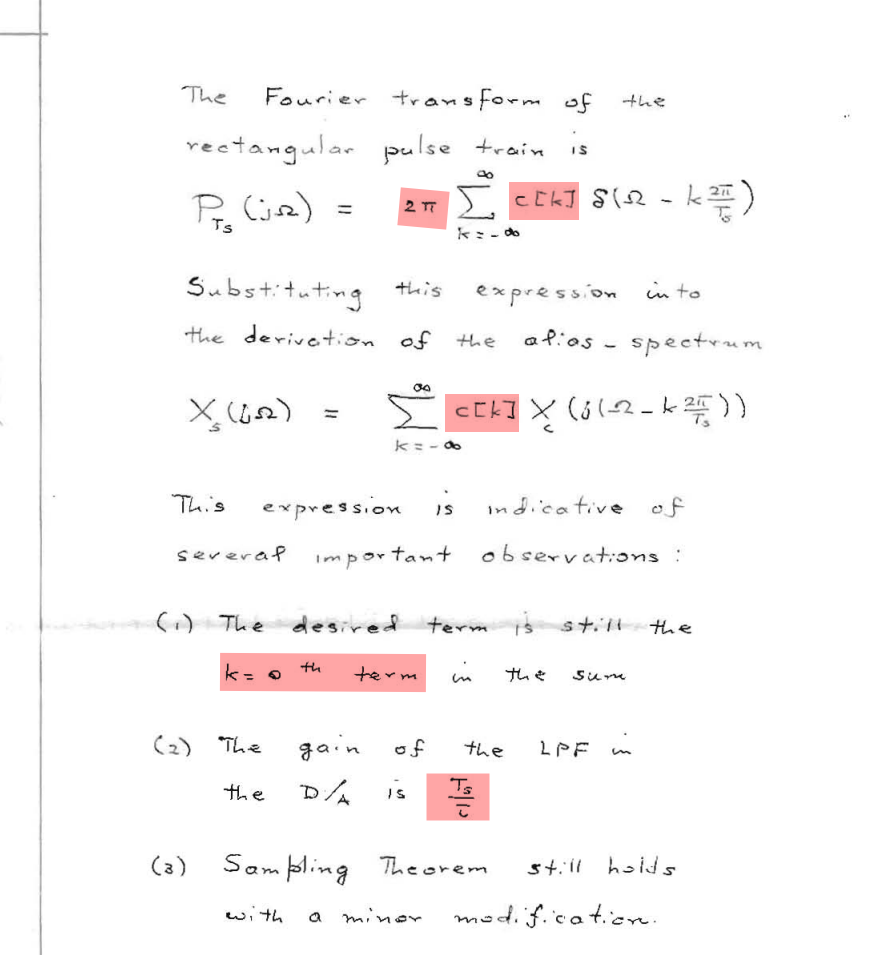 The Fourier transform of the
rectangular pulse train is
P_{T_s}(jΩ) = 2π ∑_{k=-∞}^{∞} c[k] δ(Ω - k 2π/T_s)
Substituting this expression into
the derivation of the alias-spectrum
X_s(jΩ) = ∑_{k=-∞}^{∞} c[k] X_c(j(Ω - k 2π/T_s))
This expression is indicative of
several important observations:
(1) The desired term is still the
k=0th term in the sum
(2) The gain of the LPF in
the D/A is T_s/τ
(3) Sampling Theorem still holds
with a minor modification.